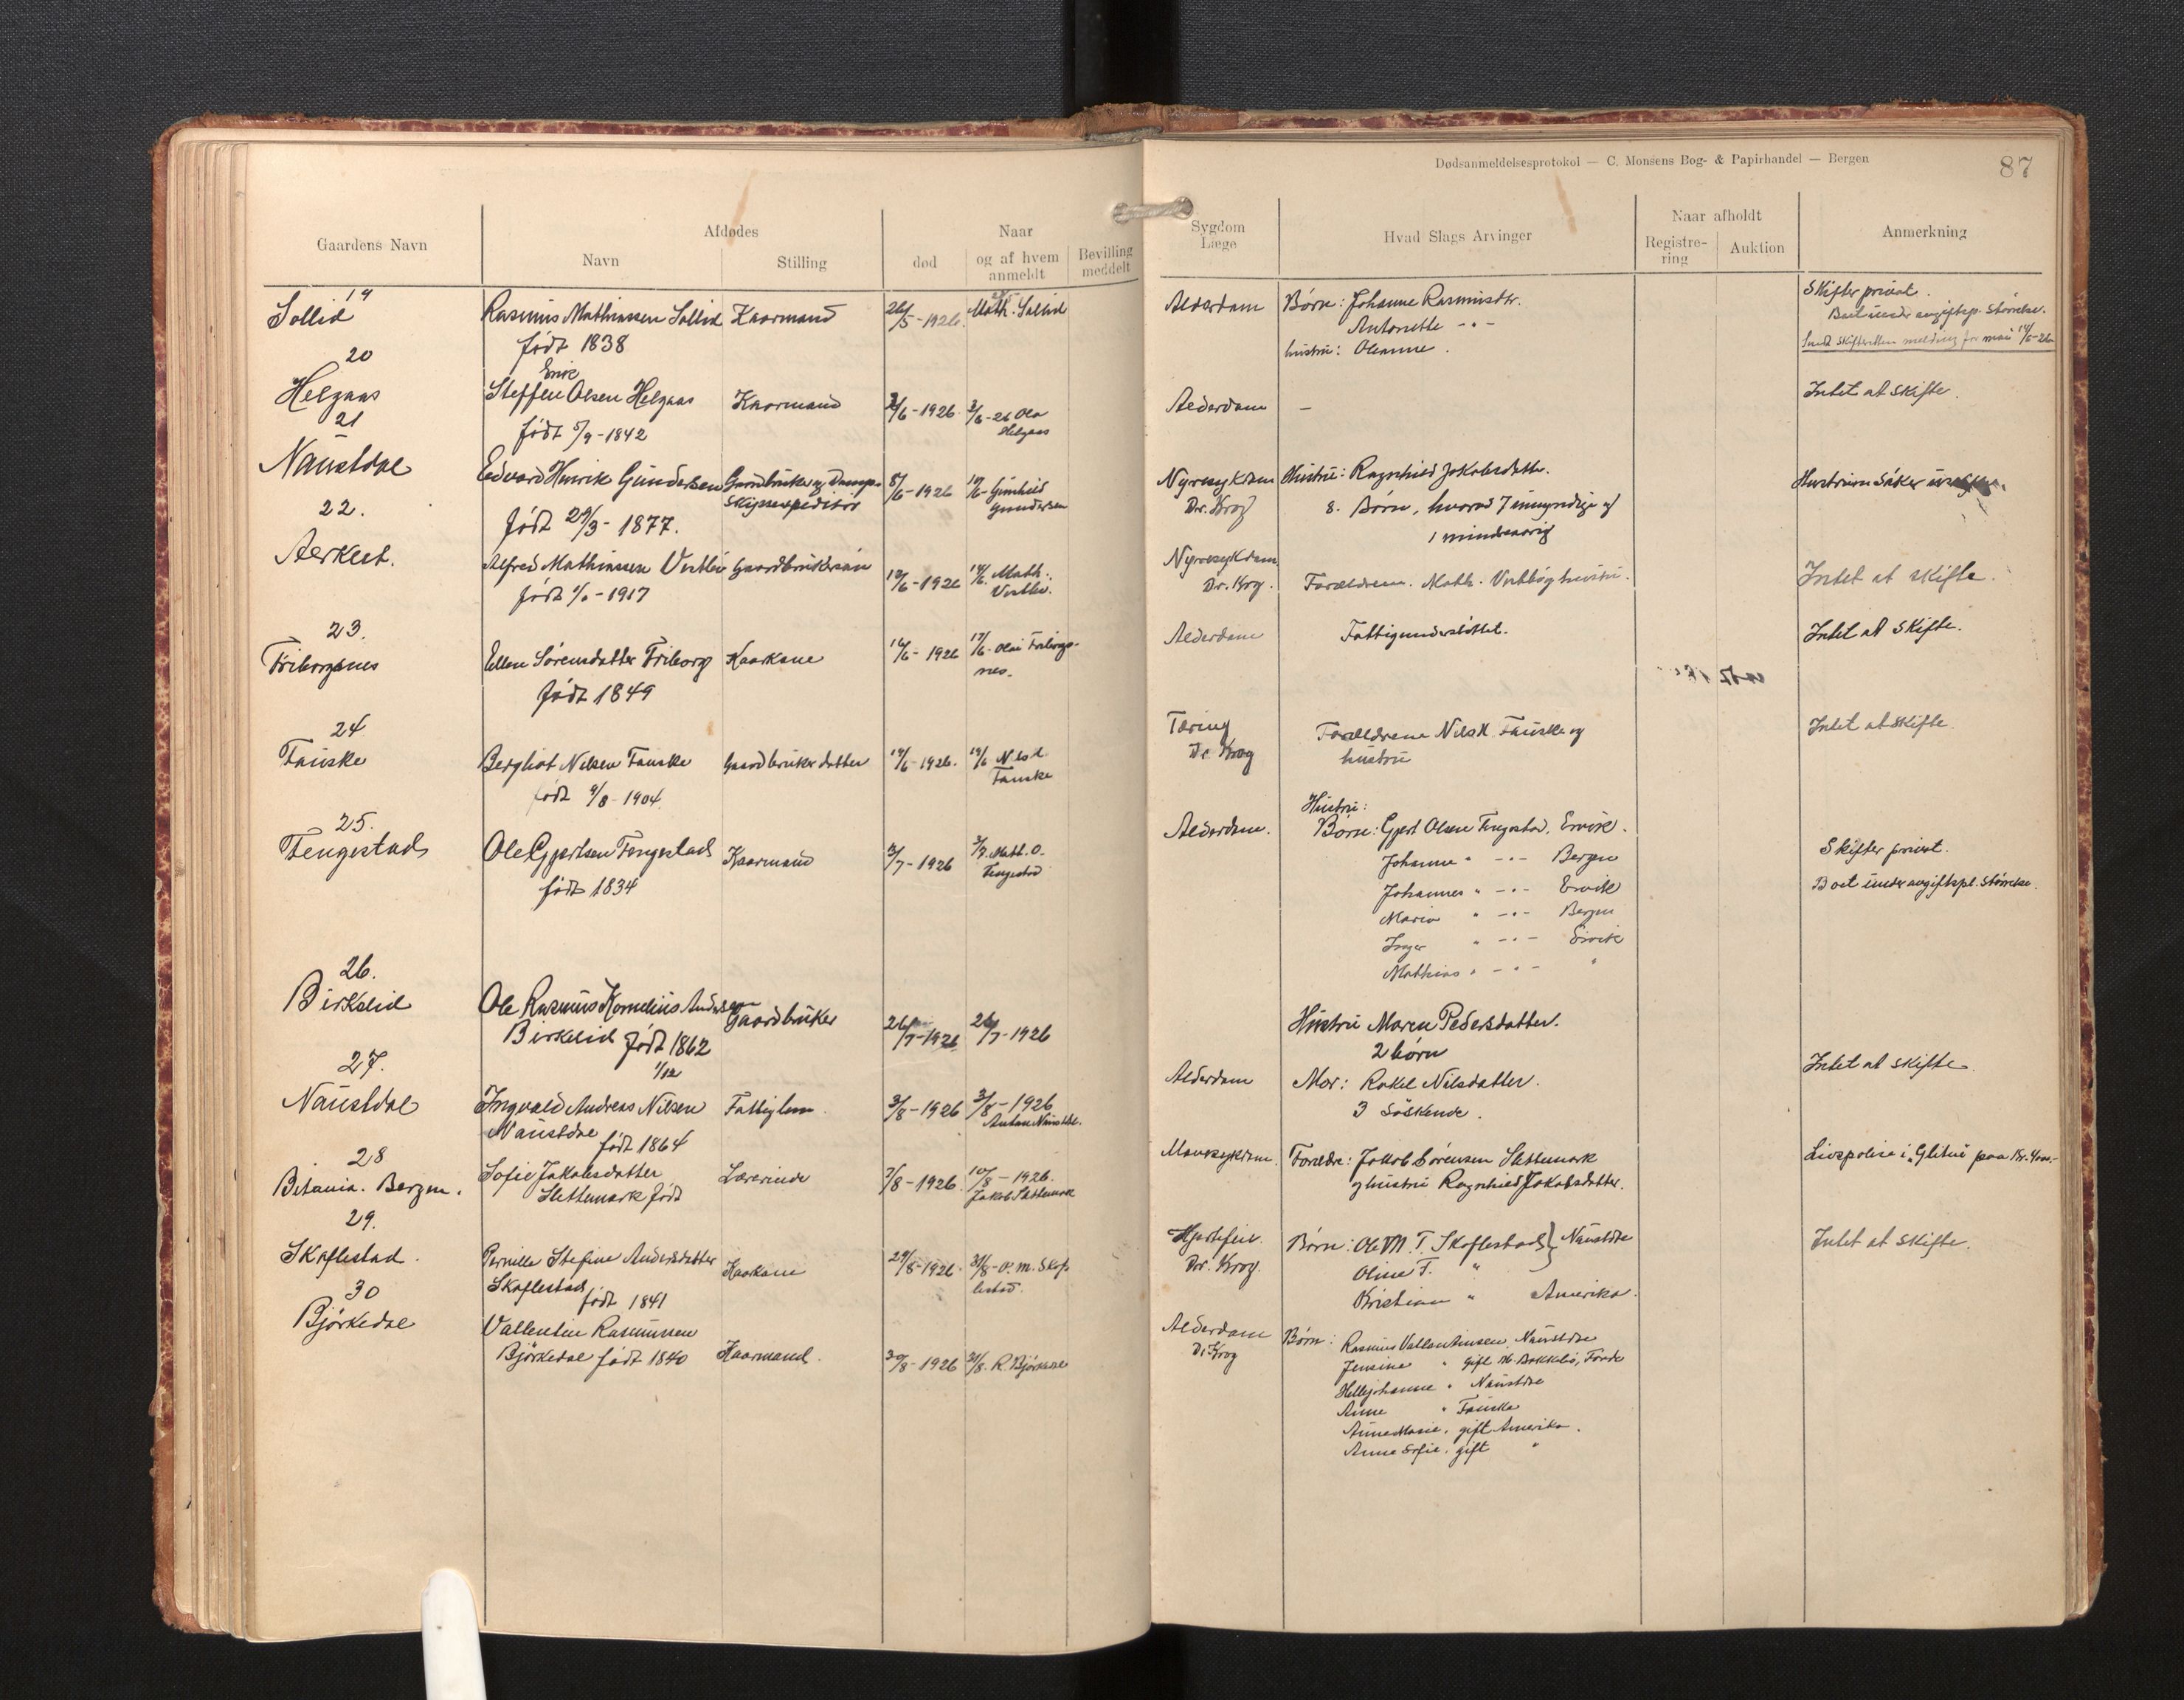 Dødsanmeldelsesprotokol — C. Monsens Bog- & Papirhandel — Bergen
87
Gaardens Navn
Afdødes
Navn
Stilling
Naar
død
og af hvem anmeldt
Bevilling meddelt
Sygdom
Læge
Hvad Slags Arvinger
Naar afholdt
Registre-
ring
Auktion
Anmerkning
19
Sollid
Rasmus Mathiassen Sollid
født 1838
Kaarmand
26/5-1926.
Math. Sollid
Alderdom
Børn: Johanne Rasmusdtr.
Antonette -"-
hustru: Oleanne.
Skifter privat.
Boet under avgiftspl. Størrelse.
Sendt Skifteretten melding for mai
20
Helgaas
Erik
Steffen Olsen Helgaas
født 5/9-1842
Kaarmand
2/6-1926.
3/6-26 Ola
Helgaas
Alderdom
-
Intet at skifte.
21
Naustdal
Edvard Henrik Gundersen
født 29/3-1877.
Gaardbruker og Damp-
Skipsexpeditør
8/6-1926
Gunhild
Gundersen
Nyresykdom
Dr. Krog
Hustru: Ragnhild Jakobsdatter.
8. Børn, hvorav 7 umyndige og
1 mindreaarig
Hustruen søker
22.
Aerklet.
Alfred Mathiassen Vestlie
født 1917
Gaardbrukersøn
12/6-1926
14/6. Math.
Vestlie.
Nyresykdom
Dr. Krog.
Forældrene. Math. Vestli og hustru.
Intet at skifte.
23.
Friborgsnes
Ellen Sørensdatter Friborg
født 1849
Kaarkone
16/6-1926
17/6. Olai Friborgs-
nes.
Alderdom
Fattigunderstøttet.
Intet at skifte.
24
Fauske
Bergliot Nilsen Fauske
født 9/8-1904.
Gaardbruker datter
19/6-1926.
19/6 Nils
Fauske
Tæring
Dr Krog
Forældrene Nils Fauske og
hustru
Intet at skifte
25.
Tengestad
Ole Gjertsen Tengestad
født 1834
Kaarmand
2/7-1926
3/7. Math. O.
Tengestad
Alderdom.
Hustru:
Børn: Gjert Olsen Tengestad, Ervik.
Johanne " -"- Bergen
Johannes " -"- Ervik
Marie " -"- Bergen
Inger " -"- Ervik
Mathias " -"- "
Skifter privat.
Boet under avgiftspl. Størrelse.
26.
Birkelid
Ole Rasmus Kornelius Andersen
Birkelid født 1862
1/12
Gaardbruker
26/7-1926
26/7-1926
Hustru Maren Pedersdatter.
2 børn
27.
Naustdal
Ingvald Andreas Nilsen
Naustdal født 1864
Fattiglem.
3/8-1926
3/8-1926
Anton Naustdal.
Alderdom
Mor: Rakel Nilsdatter.
3 Søskende.
Intet at skifte.
28
Betania. Bergen.
Sofie Jakobsdatter
Slettemark født
Lærerinde
7/8-1926.
10/8-1926.
Jakob Slettemark
Mavesykdom.
Forældre: Jakob Sørensen Slettemark
og hustru Ragnhild Jakobsdatter.
Livspolise i "Glitni" paa Kr.
29.
Skaflestad.
Pernille Stefine Andersdatter
Skaflestad født 1841
Kaarkone
29/8-1926.
31/8-O. M. Skaf-
lestad.
Hjertefeil.
Dr. Krog.
Børn: Ole M. T. Skaflestad } Naustdal
Oline T. "
Kristian " Amerika.
Intet at skifte.
30
Bjørkedal
Vallentin Rasmussen
Bjørkedal født 1840
Kaarmand.
30/8-1926
31/8. R. Bjørkedal
Alderdom
Dr Krog
Børn: Rasmus Vallentinsen, Naustdal
Jensine " gift M. Bakkelid, Førde
Hellejohanne " Naustdal
Anne " Fauske
Anne Marie, gift Amerika.
Anne Sofie, gift "